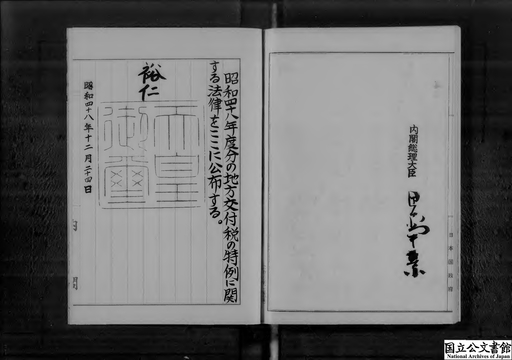 昭和四十八年度分の地方交付税の特例に関
する法律をここに公布する。
裕仁
天皇
御璽
昭和四十八年十二月二十四日
内閣総理大臣
田中角榮
国立公文書館
National Archives of Japan